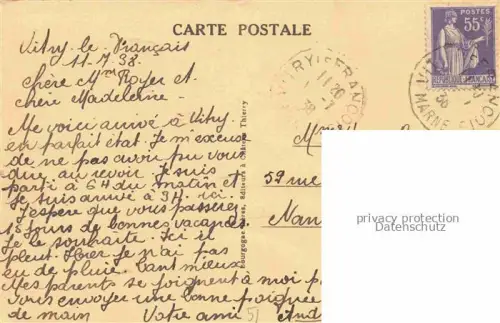 CARTE POSTALE
Vitry-le-Français
11.7.38.
Chère Mme Royer et
chère Madeleine.
Me voici arrivé à Vitry
en parfait état. Je m'excuse
de ne pas avoir pu vous
dire au revoir. Je suis
parti à 6H du matin et
je suis arrivé à 9H. ici.
J'espère que vous passerez
15 jours de bonnes vacances
Je le souhaite. Ici il
pleut. Hier je n'ai pas
eu de pluie. Tant mieux.
Mes parents se joignent à moi p
Vous envoyer une bonne poignée
de main Votre ami
And
51
Bourgogne Frères, Editeurs à Château-Thierry
POSTES
55c
REPUBLIQUE FRANÇAISE
VITRY-LE-FRANÇOIS
MARNE
Mme
59 rue
Nan
privacy protection
Datenschutz